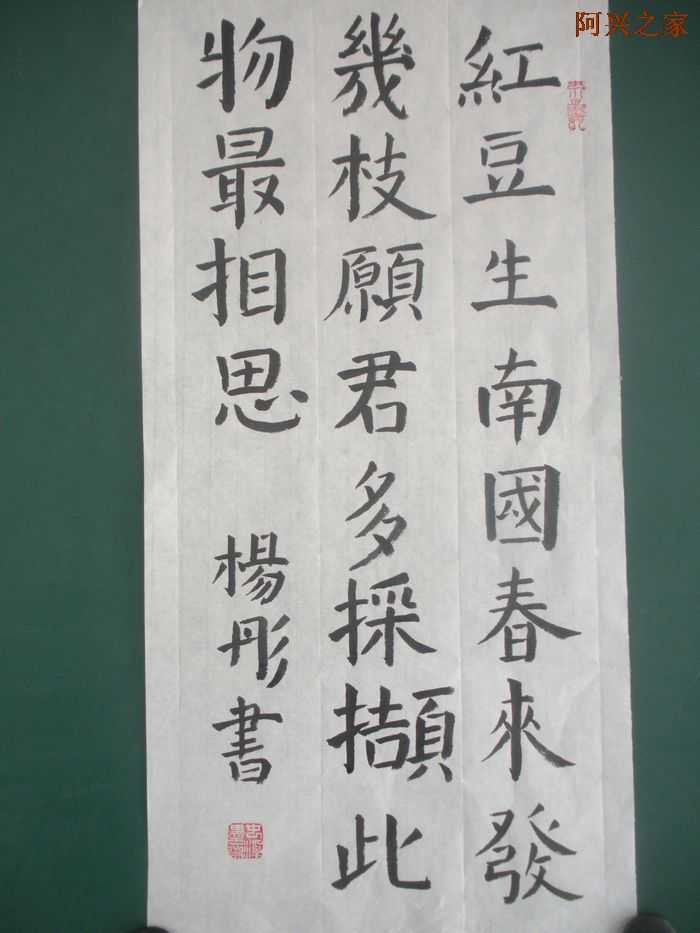 阿兴之家
紅豆生南國春來發
幾枝願君多採擷此
物最相思
楊彤書